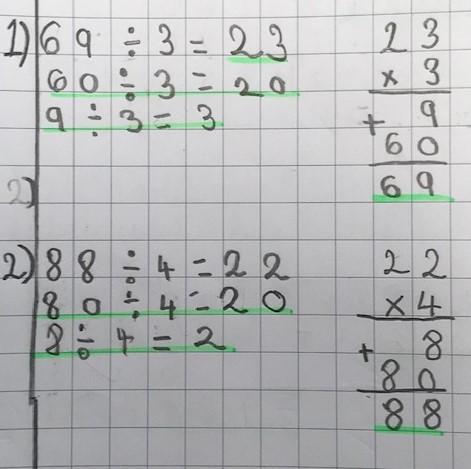 1) 69 ÷ 3 = 23
60 ÷ 3 = 20
9 ÷ 3 = 3
23
× 3
+ 9
60
69
2)
2) 88 ÷ 4 = 22
80 ÷ 4 = 20
8 ÷ 4 = 2
22
×4
+ 8
80
88